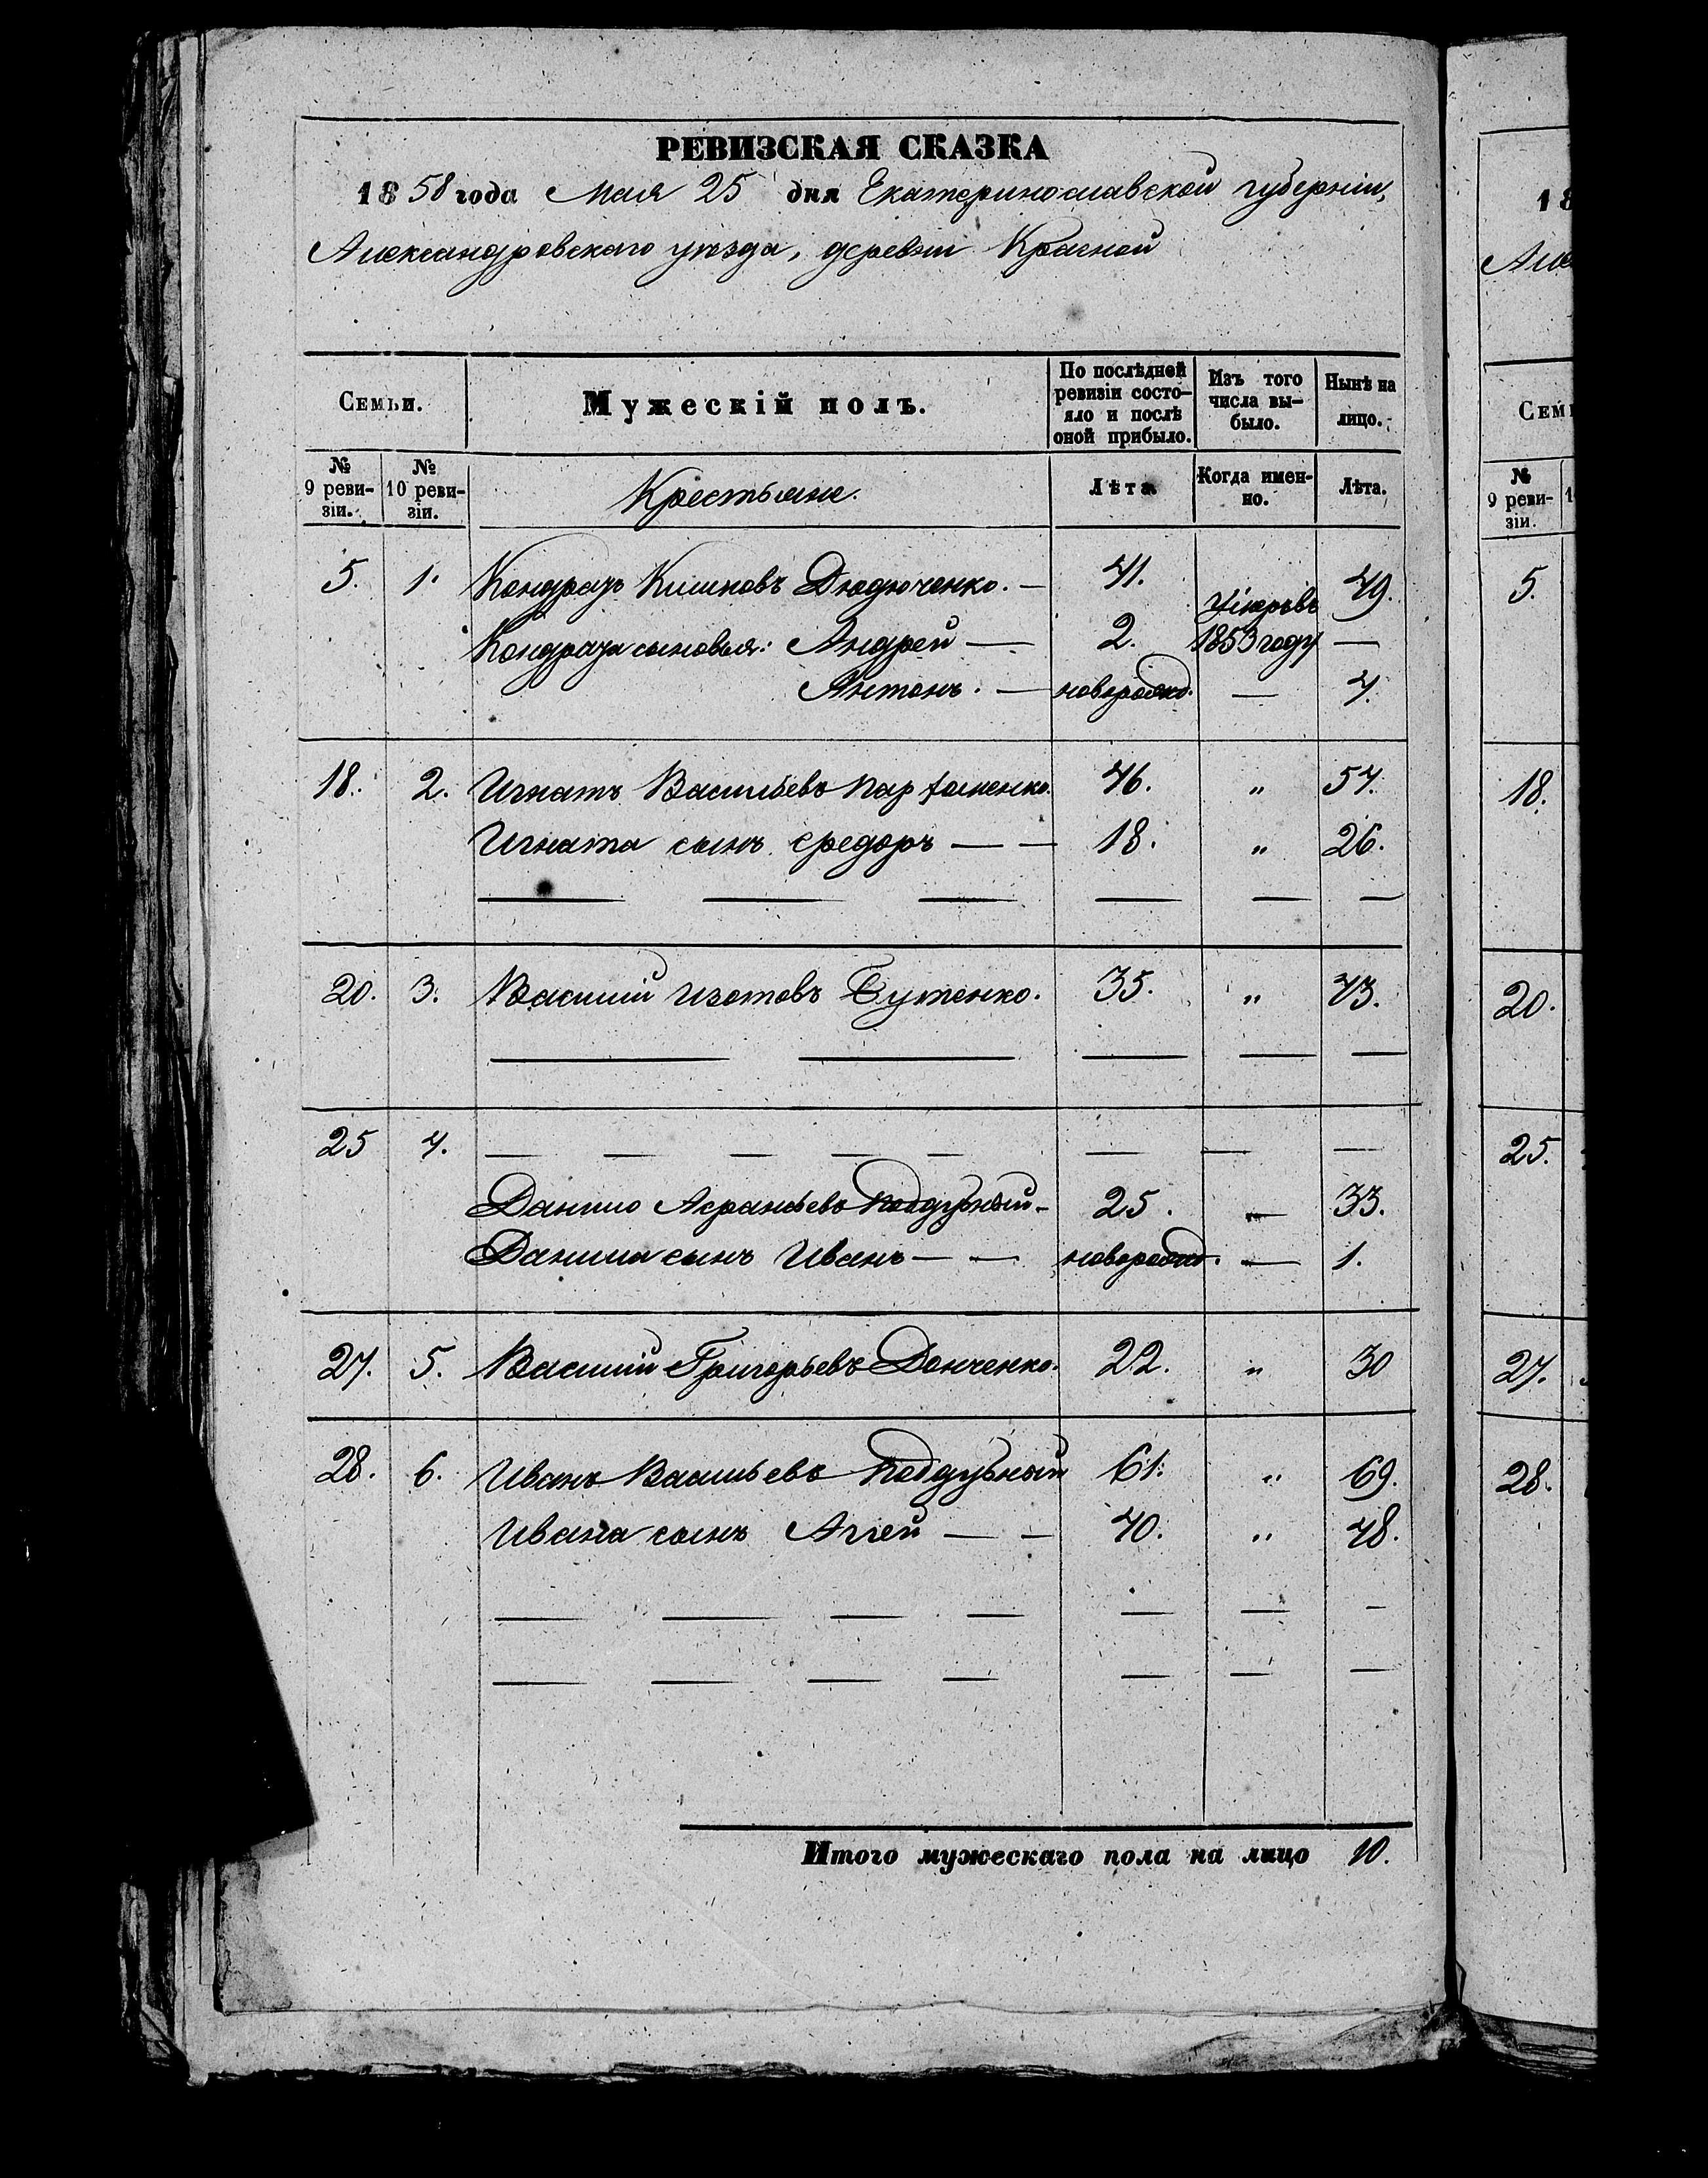 РЕВИЗСКАЯ СКАЗКА
1858 года Мая 25 дня Екатеринославской губерніи,
Александровскаго уѣзда, деревни Красной
Семьи. Мужескій полъ. По послѣдней ревизіи состо-яло и послѣ оной прибыло. Изъ того числа вы-было. Нынѣ на лицо.
№ 9 реви-зіи. № 10 реви-зіи. Крестьяне. Лѣта Когда имен-но. Лѣта.
5. 1. Кондратъ Климовъ Дюдюченко. — 41. 49.
Кондрата сыновья: Андрей — 2. умеръ въ 1853 году —
Антонъ. — новорожд. — 4.
18. 2. Игнатъ Васильевъ Парфоменко. 46. " 54.
Игната сынъ Федоръ — — 18. " 26.
— — — — — —
20. 3. Василий Изотовъ Бутенко. 35. " 43.
— — — — —
25 4. — — — — — — — —
Данило Афанасьевъ Поддубный. 25. — 33.
Данила сынъ Иванъ — — новорожд. — 1.
27. 5. Василий Григорьевъ Донченко. 22. " 30
28. 6. Иванъ Васильевъ Поддубный 61. " 69.
Ивана сынъ Агей — — 40. " 48.
— — — — — — —
— — — — — — —
Итого мужескаго пола на лицо 10.
18
Але
Сем
№ 9 реви-зіи.
5.
18.
20.
25.
27.
28.